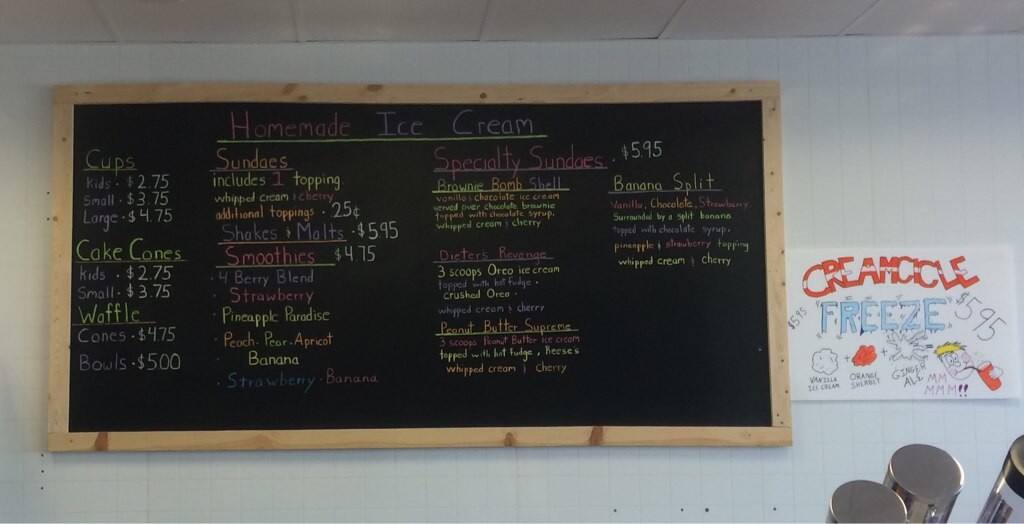 Homemade Ice Cream
Cups
Kids · $2.75
Small · $3.75
Large · $4.75
Cake Cones
Kids · $2.75
Small · $3.75
Waffle
Cones · $4.75
Bowls · $5.00
Sundaes
includes 1 topping
whipped cream & cherry
additional toppings · 25¢
Shakes & Malts · $5.95
Smoothies $4.75
· 4 Berry Blend
· Strawberry
· Pineapple Paradise
· Peach · Pear · Apricot
· Banana
· Strawberry · Banana
Specialty Sundaes · $5.95
Brownie Bomb Shell
vanilla & chocolate ice cream
served over chocolate brownie
topped with chocolate syrup.
whipped cream & cherry
Dieters Revenge
3 scoops Oreo ice cream
topped with hot fudge ·
crushed Oreo ·
whipped cream & cherry
Peanut Butter Supreme
3 scoops Peanut Butter ice cream
topped with hot fudge, Reeses
whipped cream & cherry
Banana Split
Vanilla, Chocolate, Strawberry
Surrounded by a split banana
topped with chocolate syrup.
pineapple & strawberry topping
whipped cream & cherry
CREAMCICLE
FREEZE
$5.95
$5.95
VANILLA
ICE CREAM
+
ORANGE
SHERBET
+
GINGER
ALE
MM
MMM!!